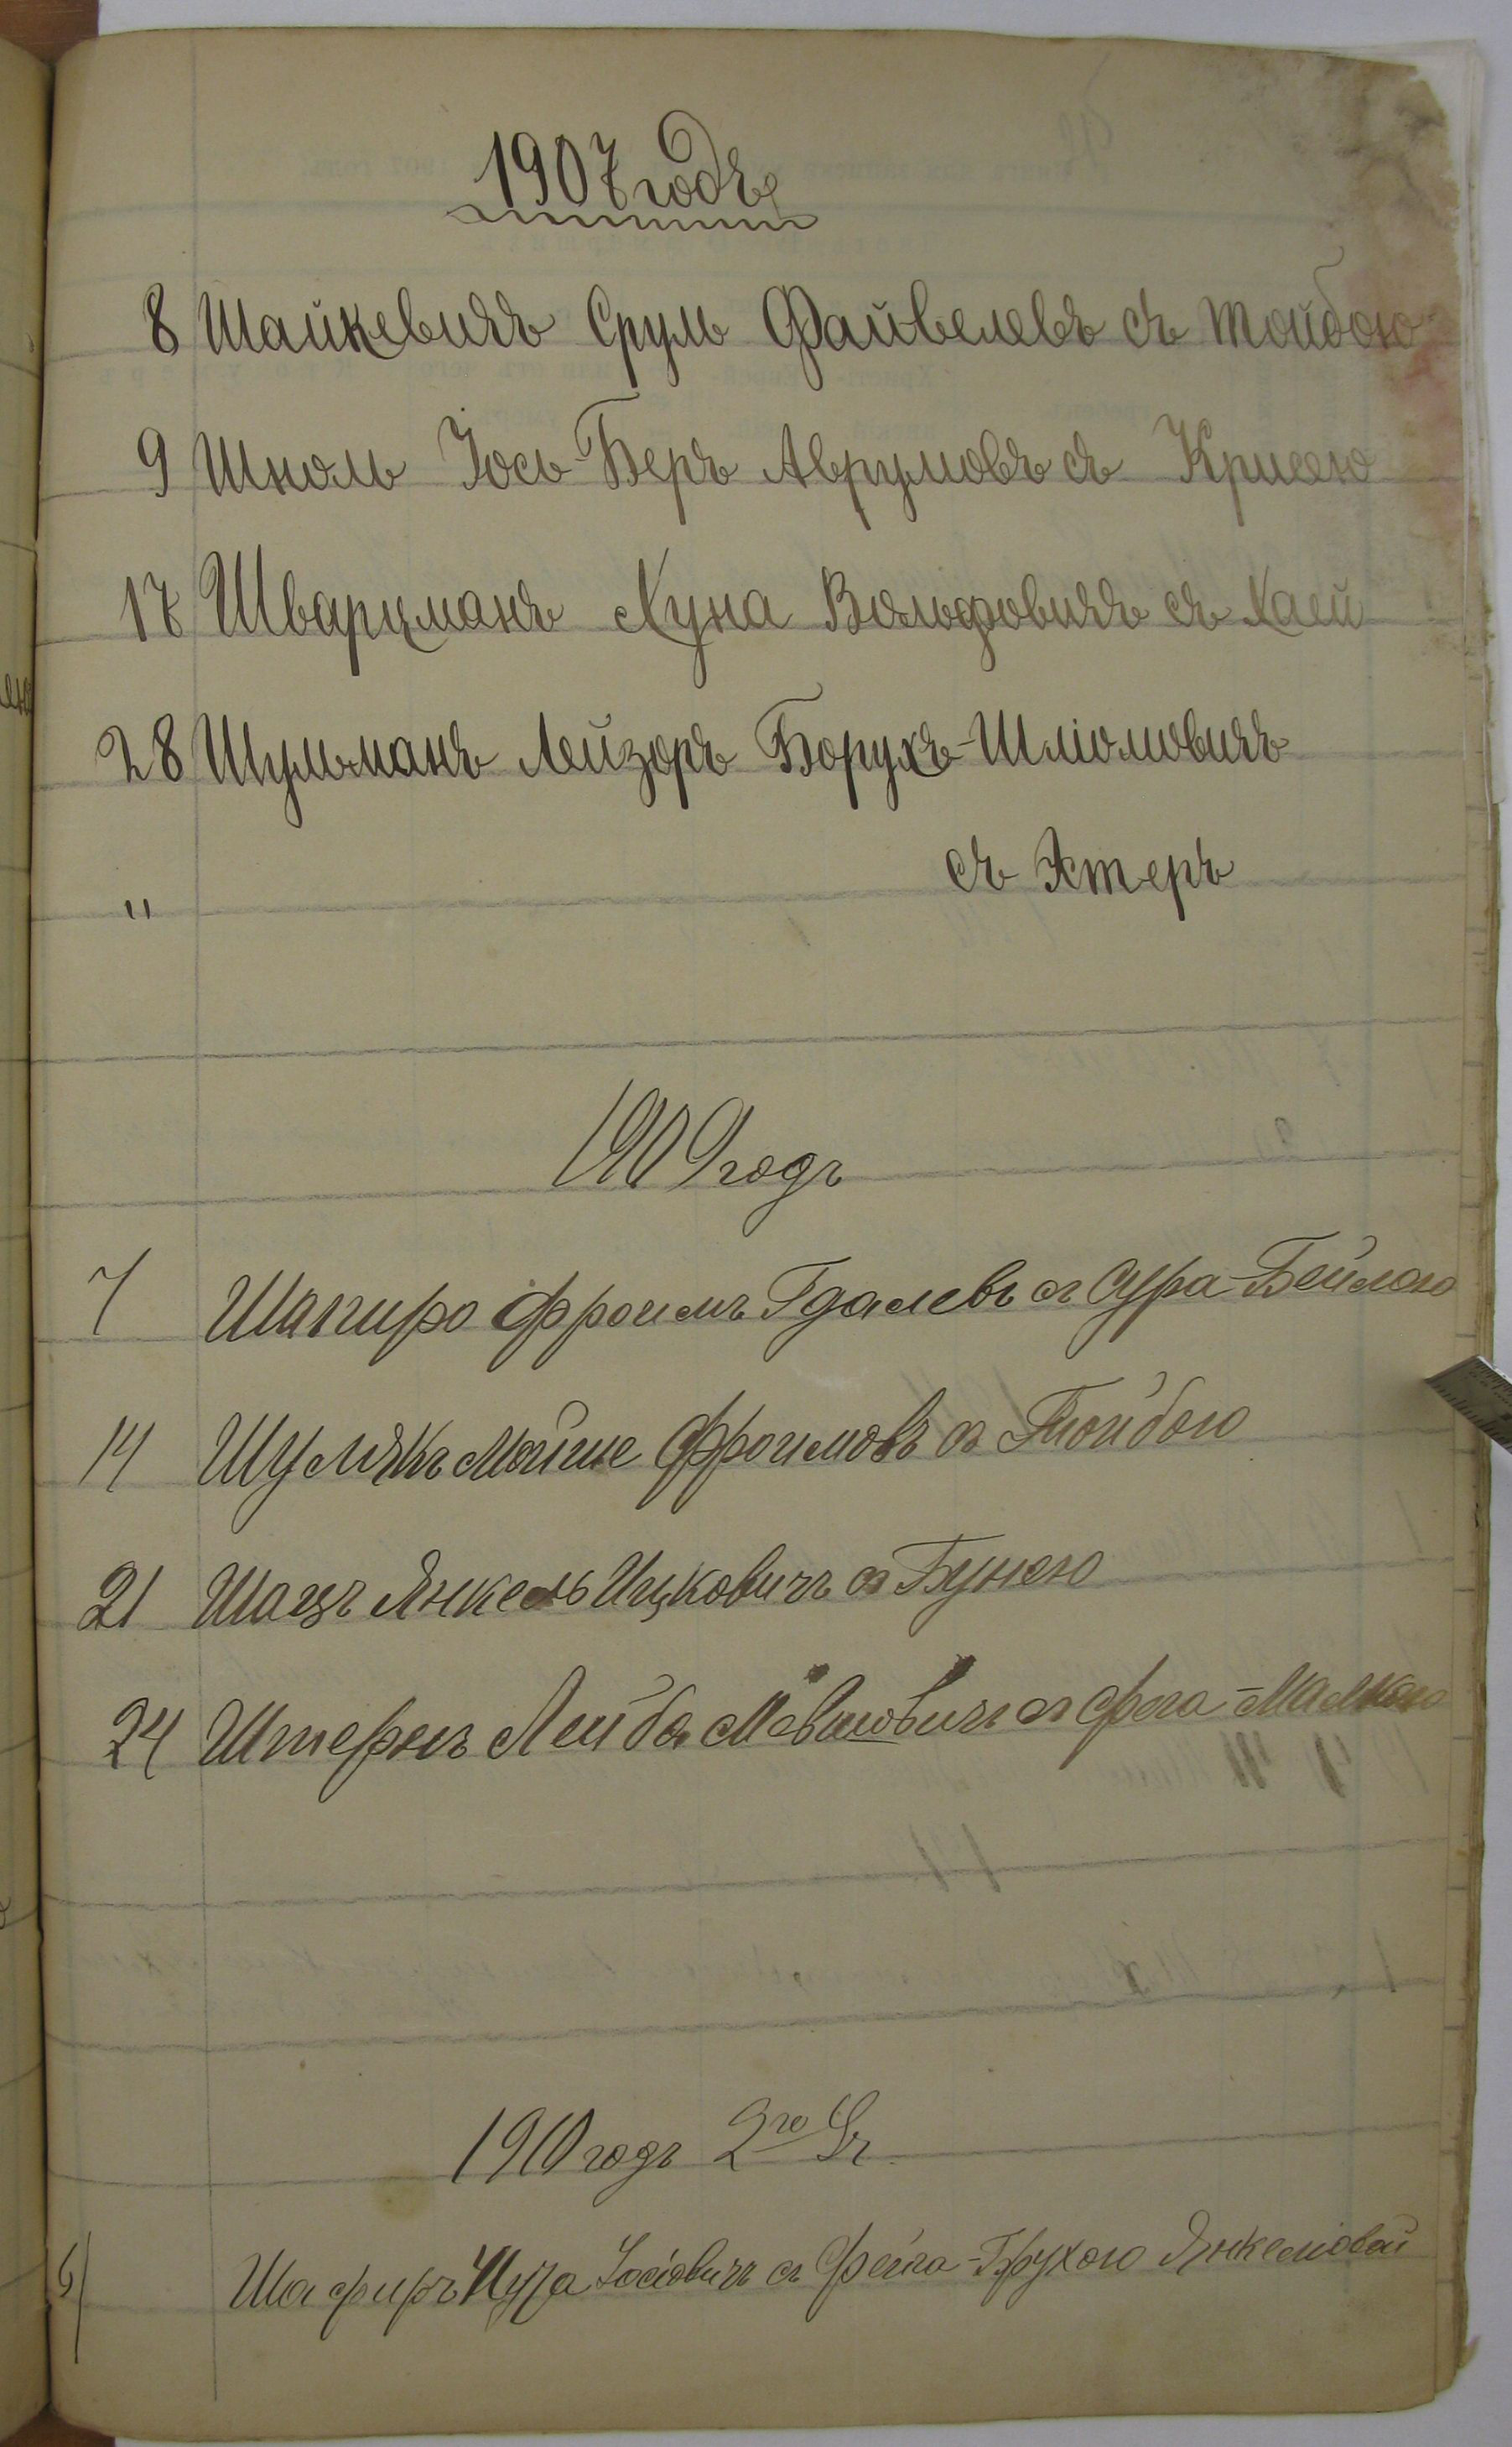 1907 годъ
8 Шайкевичъ Сруль Файвелевъ съ Тойбою
9 Школь Іось-Беръ Аврумовъ съ Крисею
17 Шварцманъ Хуна Вольфовичъ съ Хаей
28 Шульманъ Лейзоръ Борухъ-Шліомовичъ
" съ Эстеръ
1909 годъ
7 Шапиро Фроимъ Гдалевъ съ Сура-Бейлою
14 Шулякъ Мойше Фроимовъ съ Тойбою
21 Шацъ Янкель Ицковичъ съ Бунею
24 Штернъ Лейба съ -Малкою
1910 годъ 2го
Шафиръ Іосіовичъ съ Фейга-Брухою Янкеліовой